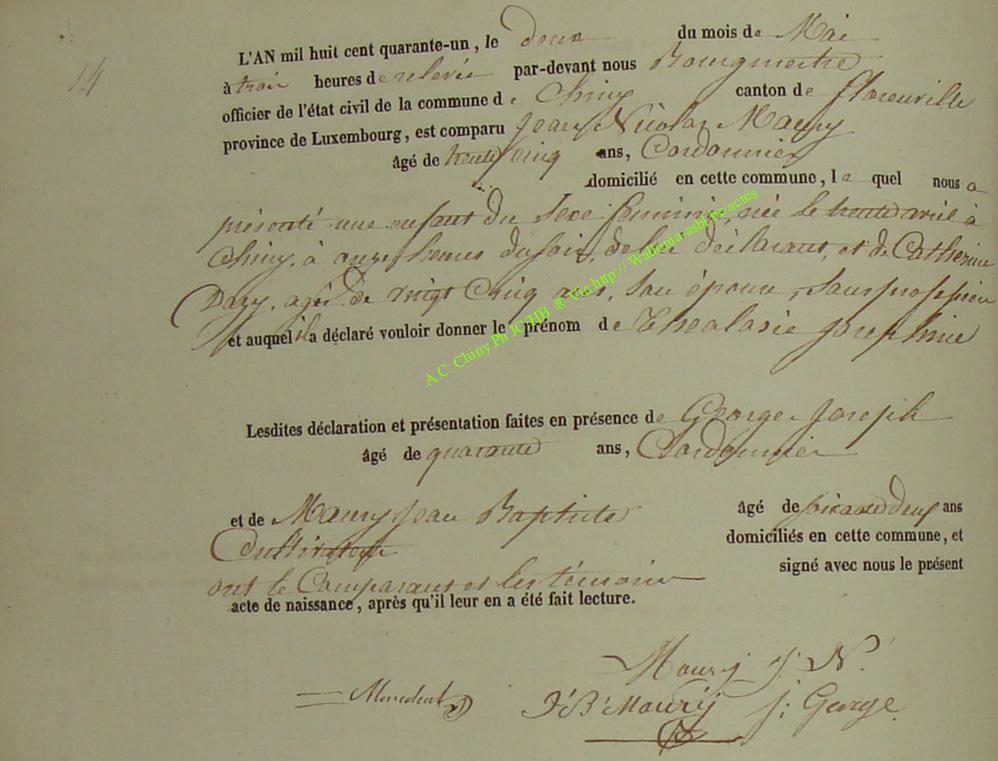 14
L'AN mil huit cent quarante-un, le deux du mois de Mai
à trois heures de relevée par-devant nous Bourgmestre
officier de l'état civil de la commune de Chiny canton de florenville
province de Luxembourg, est comparu Jean Nicolas Maury
âgé de trente cinq ans, Cordonnier
domicilié en cette commune, le quel nous a
présenté une enfant du sexe feminin, née le trente avril à
Chiny, à onze heures du soir, de lui déclarant, et de Catherine
agée de vingt cinq ans, son épouse, sans profession
et auquel il a déclaré vouloir donner le prénom de josephine
Lesdites déclaration et présentation faites en présence de George joseph
âgé de quarante ans, Cordonnier
et de Maury jean Baptiste âgé de soixante deux ans
Cultivateur domiciliés en cette commune, et
ont le Comparant et les témoins signé avec nous le présent
acte de naissance, après qu'il leur en a été fait lecture.
Maury J. N.
J B Maury j: George
A.C. Chiny Ph JC/HB ® Via http:// Wallonia-asbl.be/actes